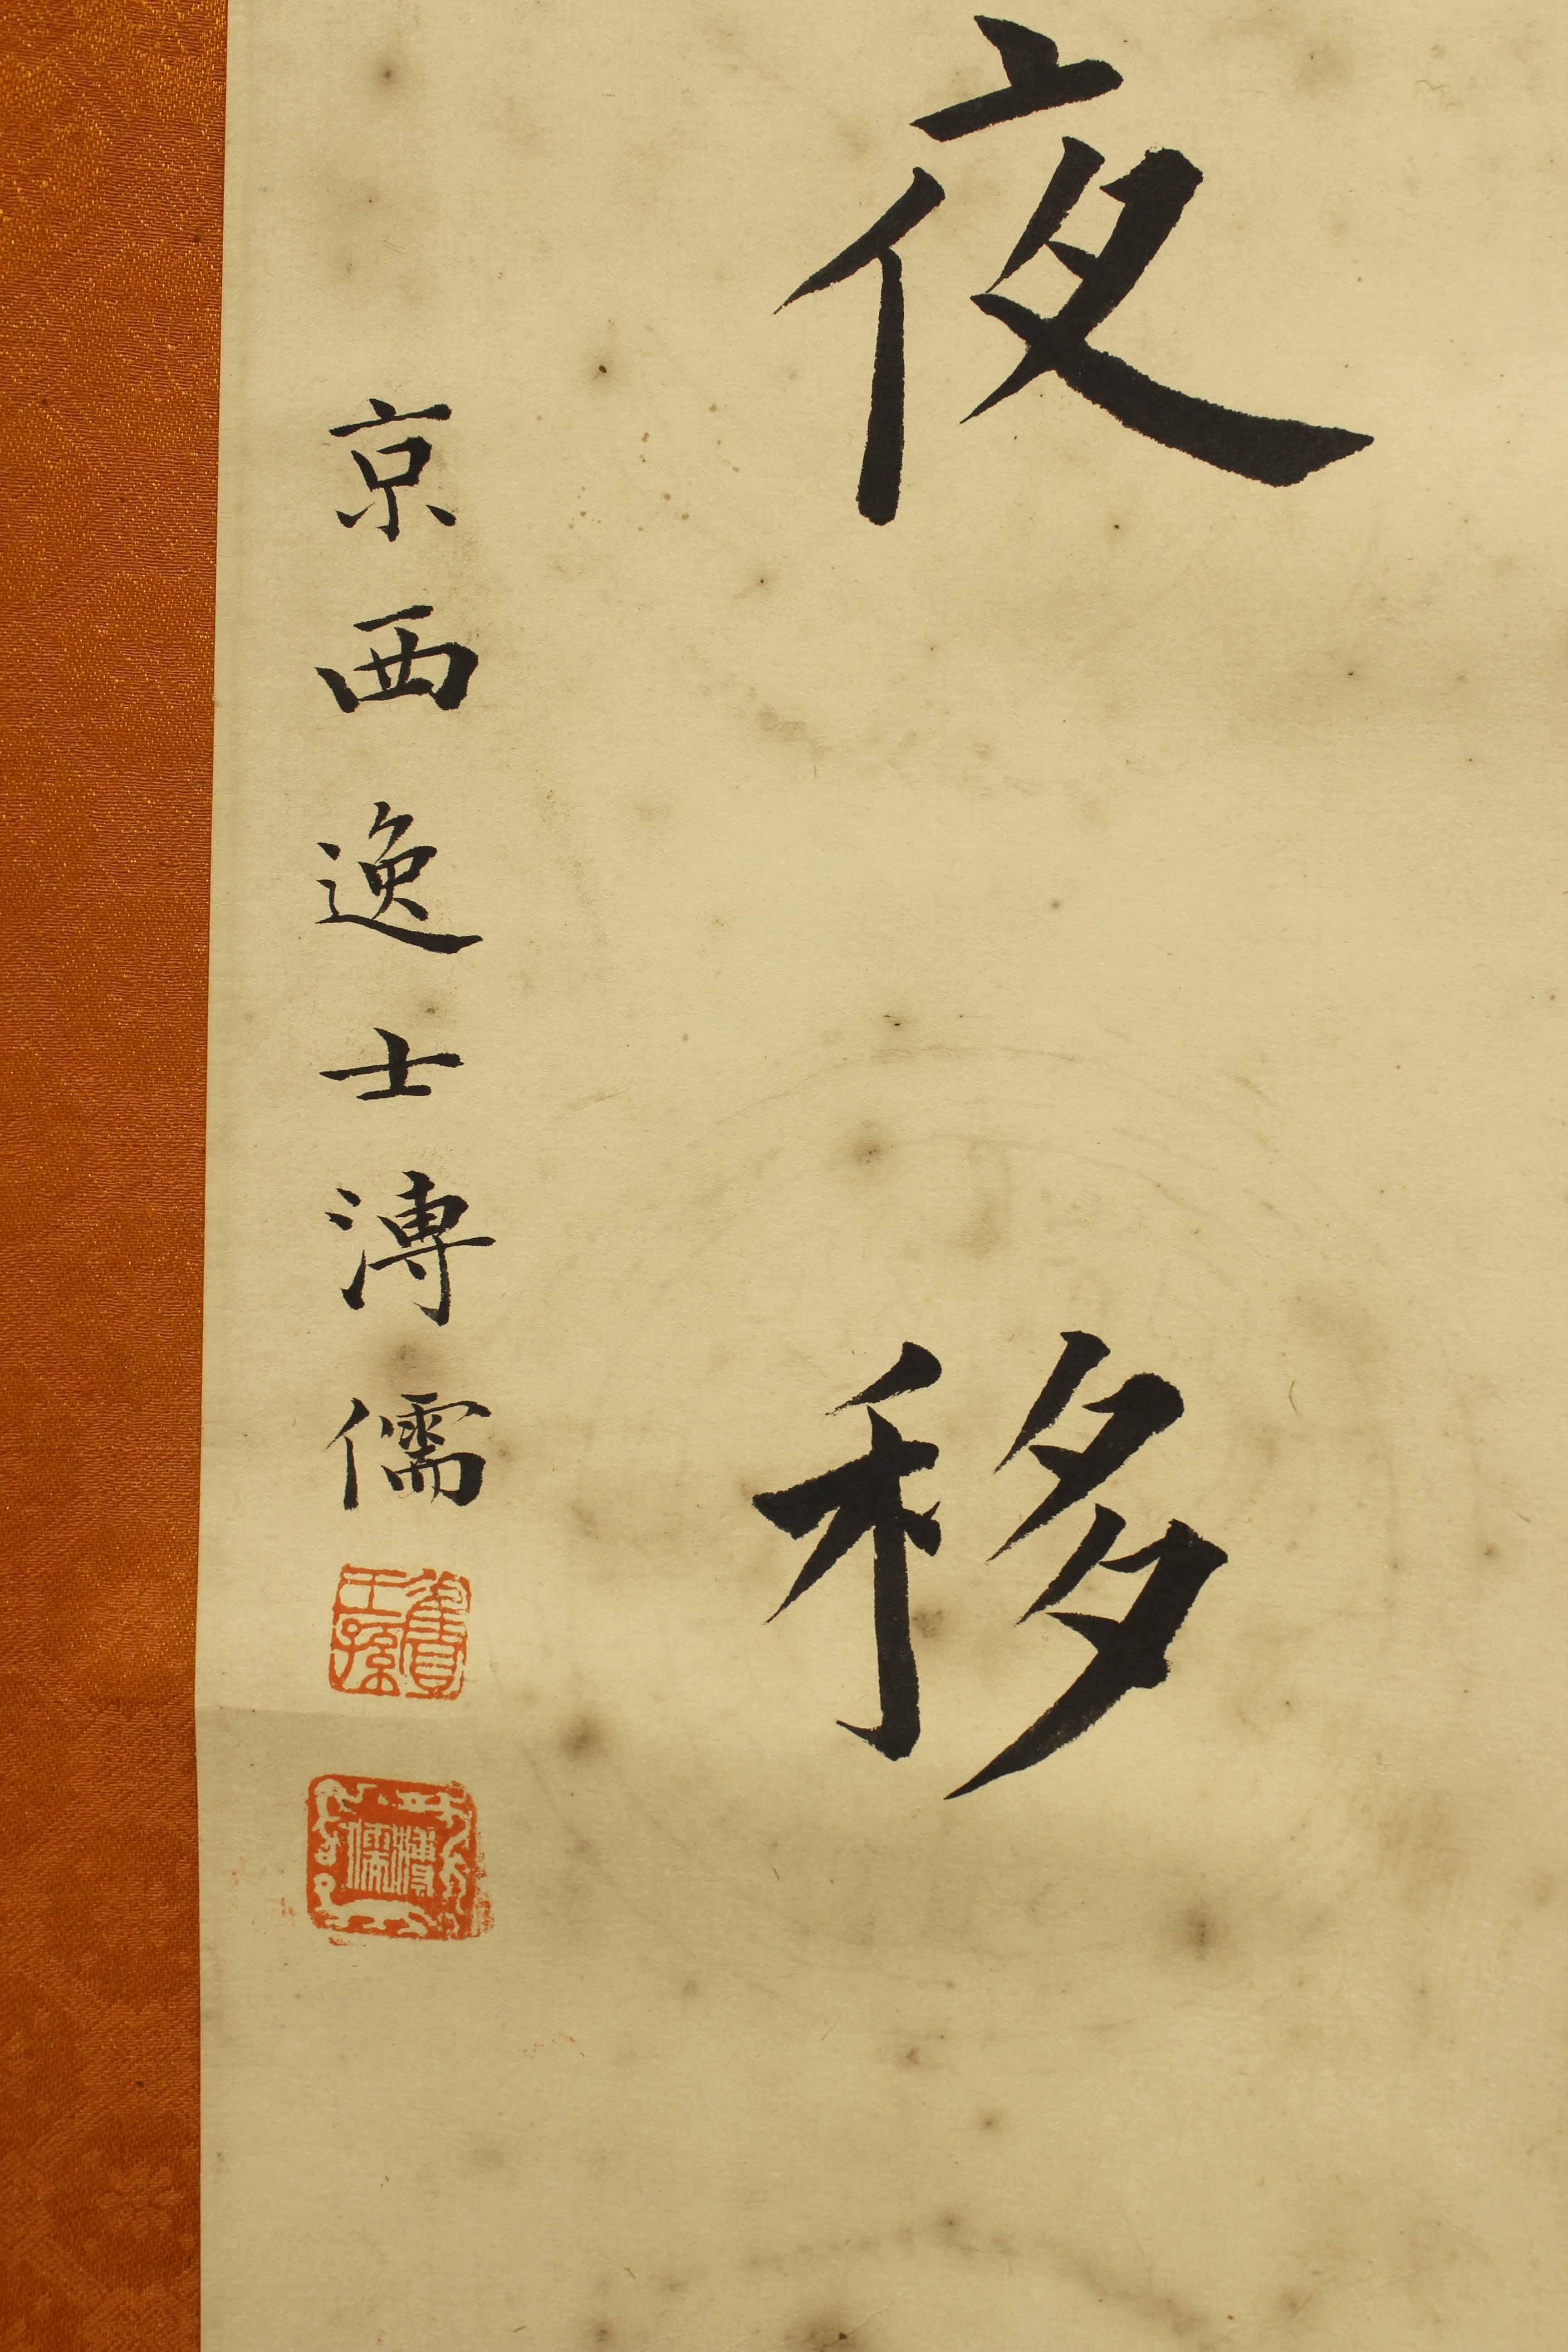 夜移
京西逸士溥儒
舊王孫
溥儒